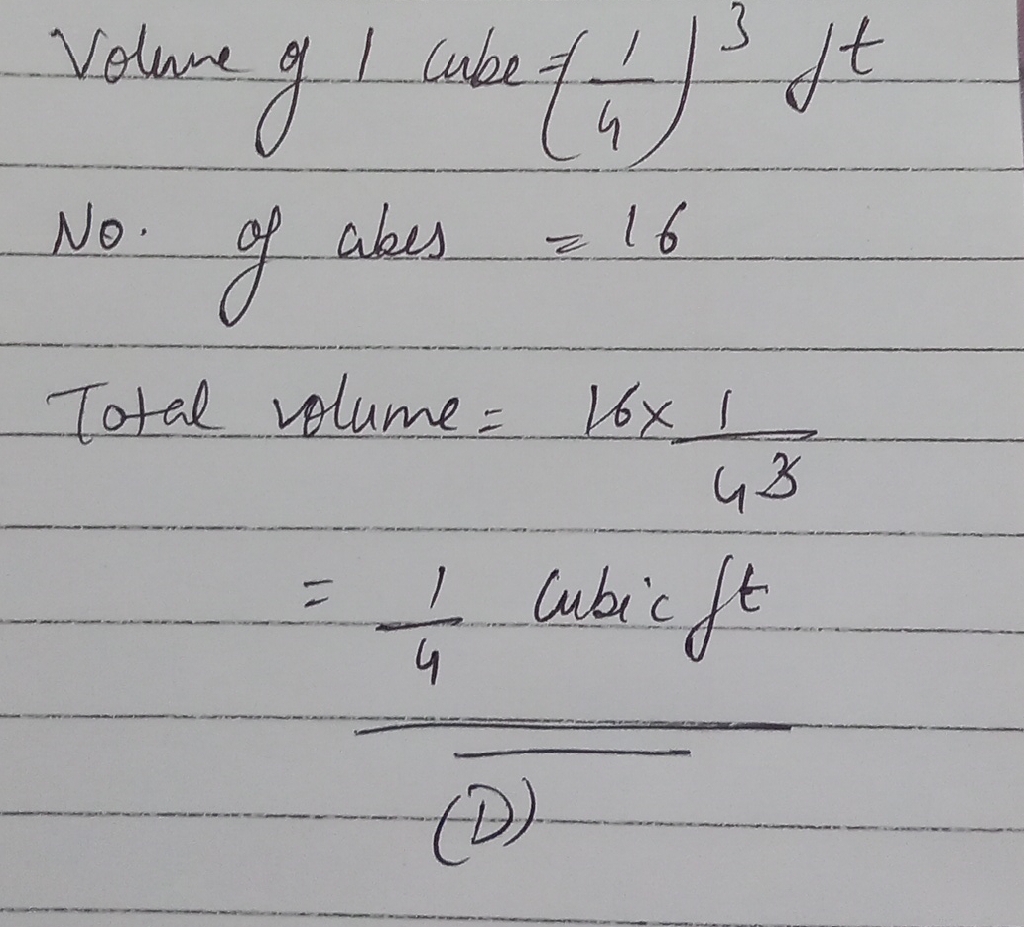 Volume of 1 cube = (1/4)³ ft
No. of cubes = 16
Total volume = 16 x 1/4³
= 1/4 Cubic ft
(D)